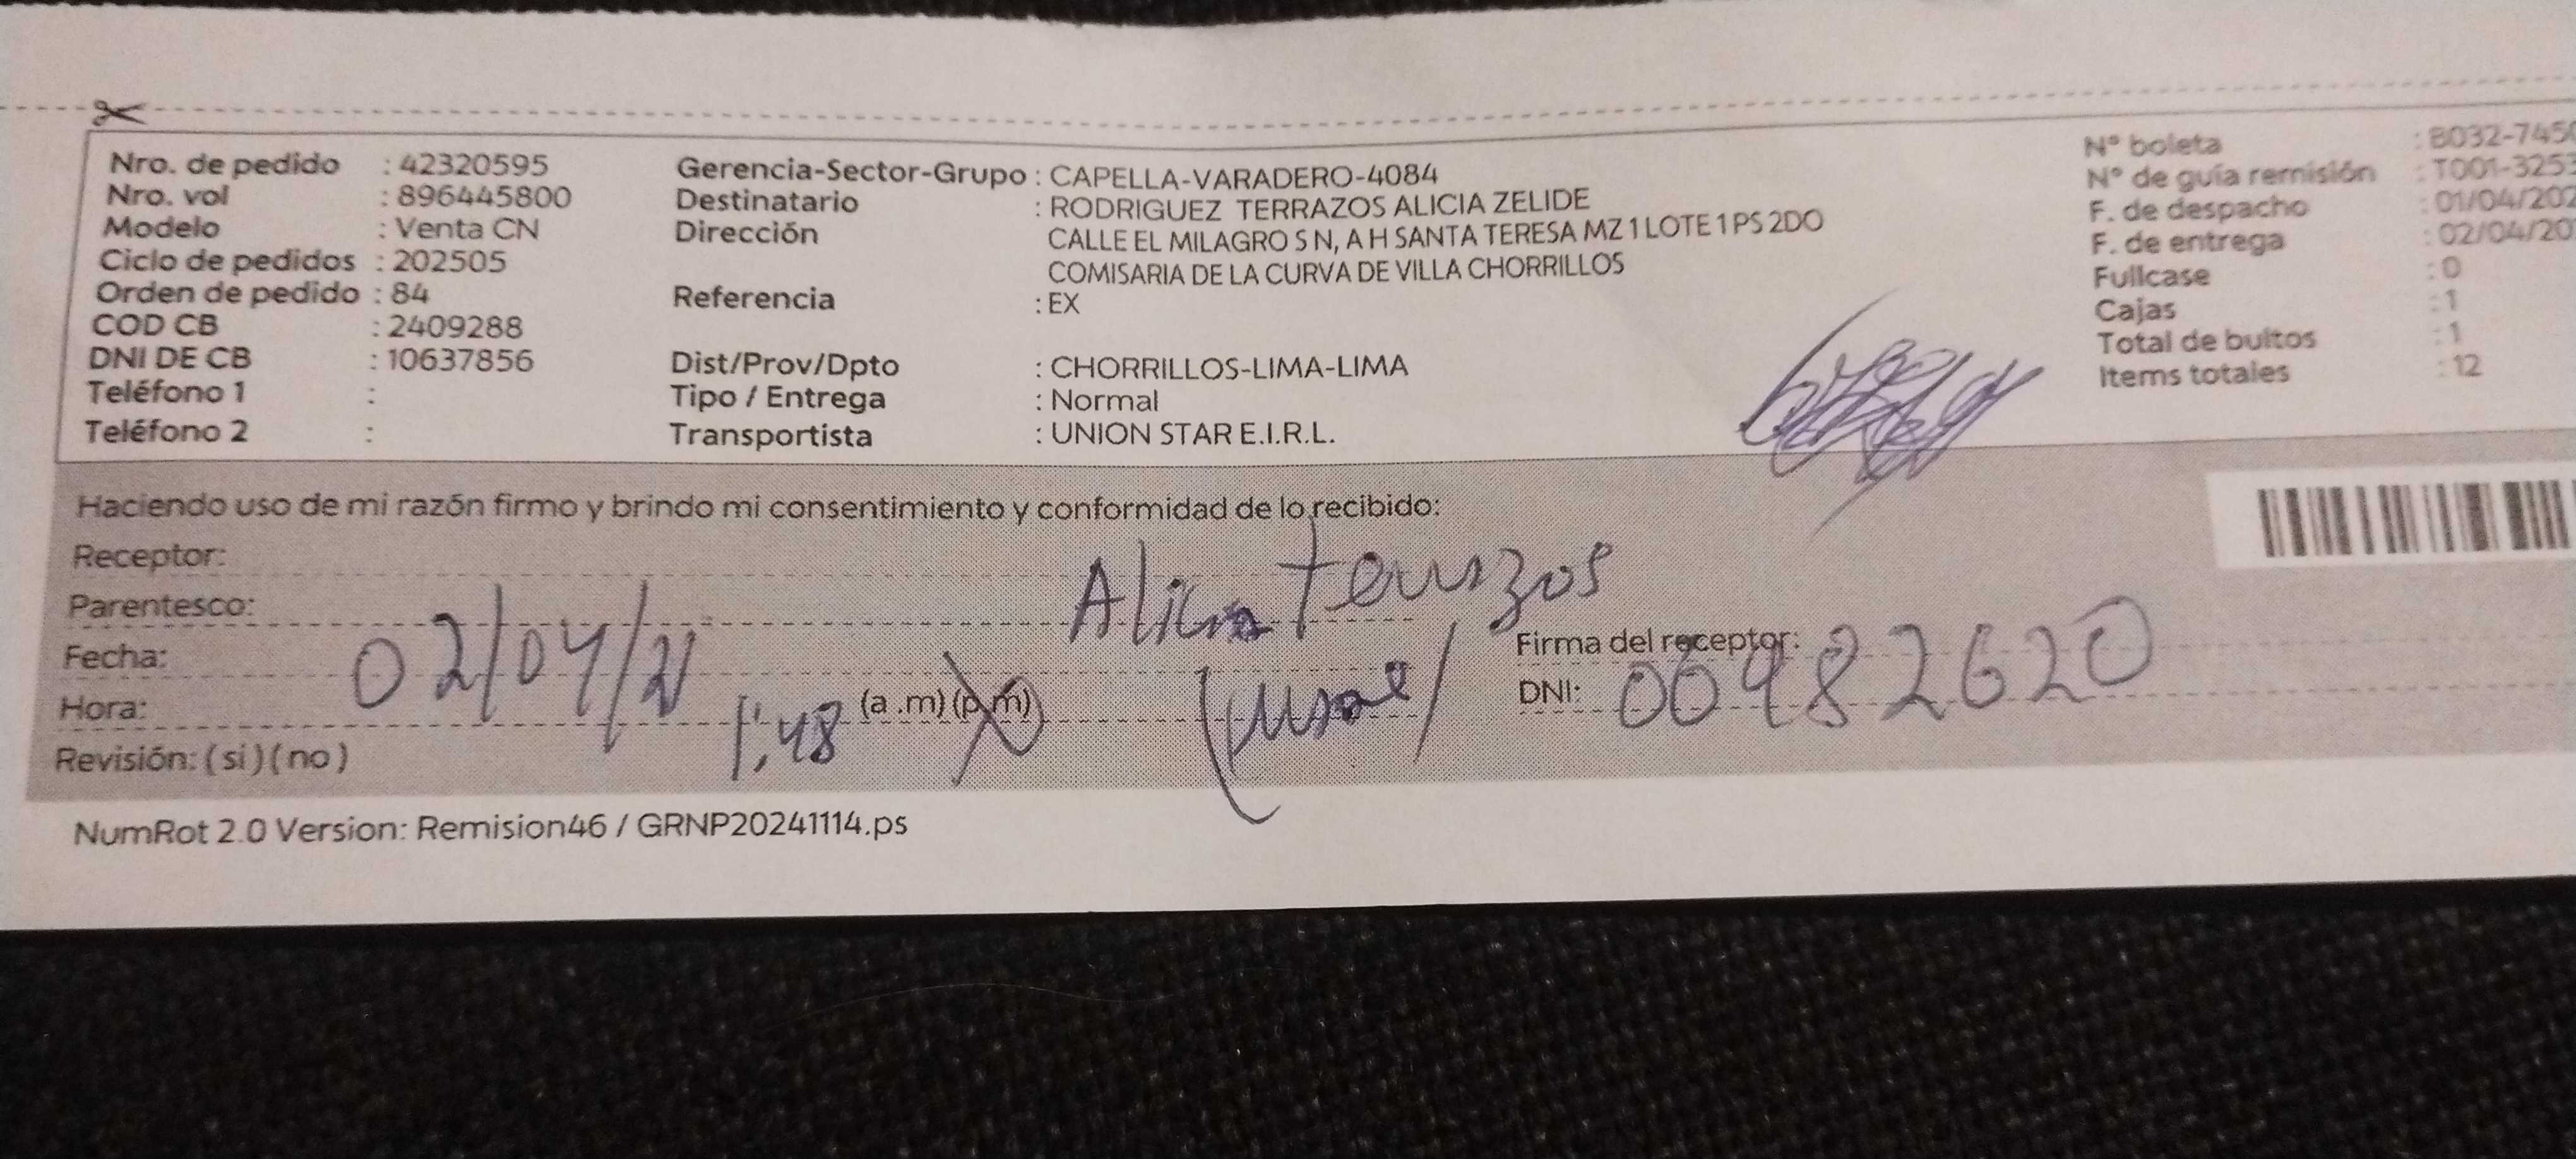 Nro. de pedido : 42320595
Nro. vol : 896445800
Modelo : Venta CN
Ciclo de pedidos : 202505
Orden de pedido : 84
COD CB : 2409288
DNI DE CB : 10637856
Teléfono 1 :
Teléfono 2 :
Gerencia-Sector-Grupo : CAPELLA-VARADERO-4084
Destinatario : RODRIGUEZ TERRAZOS ALICIA ZELIDE
Dirección CALLE EL MILAGRO S N, A H SANTA TERESA MZ 1 LOTE 1 PS 2DO
COMISARIA DE LA CURVA DE VILLA CHORRILLOS
Referencia : EX
Dist/Prov/Dpto : CHORRILLOS-LIMA-LIMA
Tipo / Entrega : Normal
Transportista : UNION STAR E.I.R.L.
N° boleta : B032-745
N° de guía remisión : T001-3253
F. de despacho : 01/04/202
F. de entrega : 02/04/20
Fullcase : 0
Cajas : 1
Total de bultos : 1
Items totales : 12
Haciendo uso de mi razón firmo y brindo mi consentimiento y conformidad de lo recibido:
Receptor: Alicia Terrazos
Parentesco:
Fecha: 02/04/
Firma del receptor:
Hora: 1:48 (a .m) (p.m)
DNI: 00482620
Revisión: ( si ) ( no )
NumRot 2.0 Version: Remision46 / GRNP20241114.ps